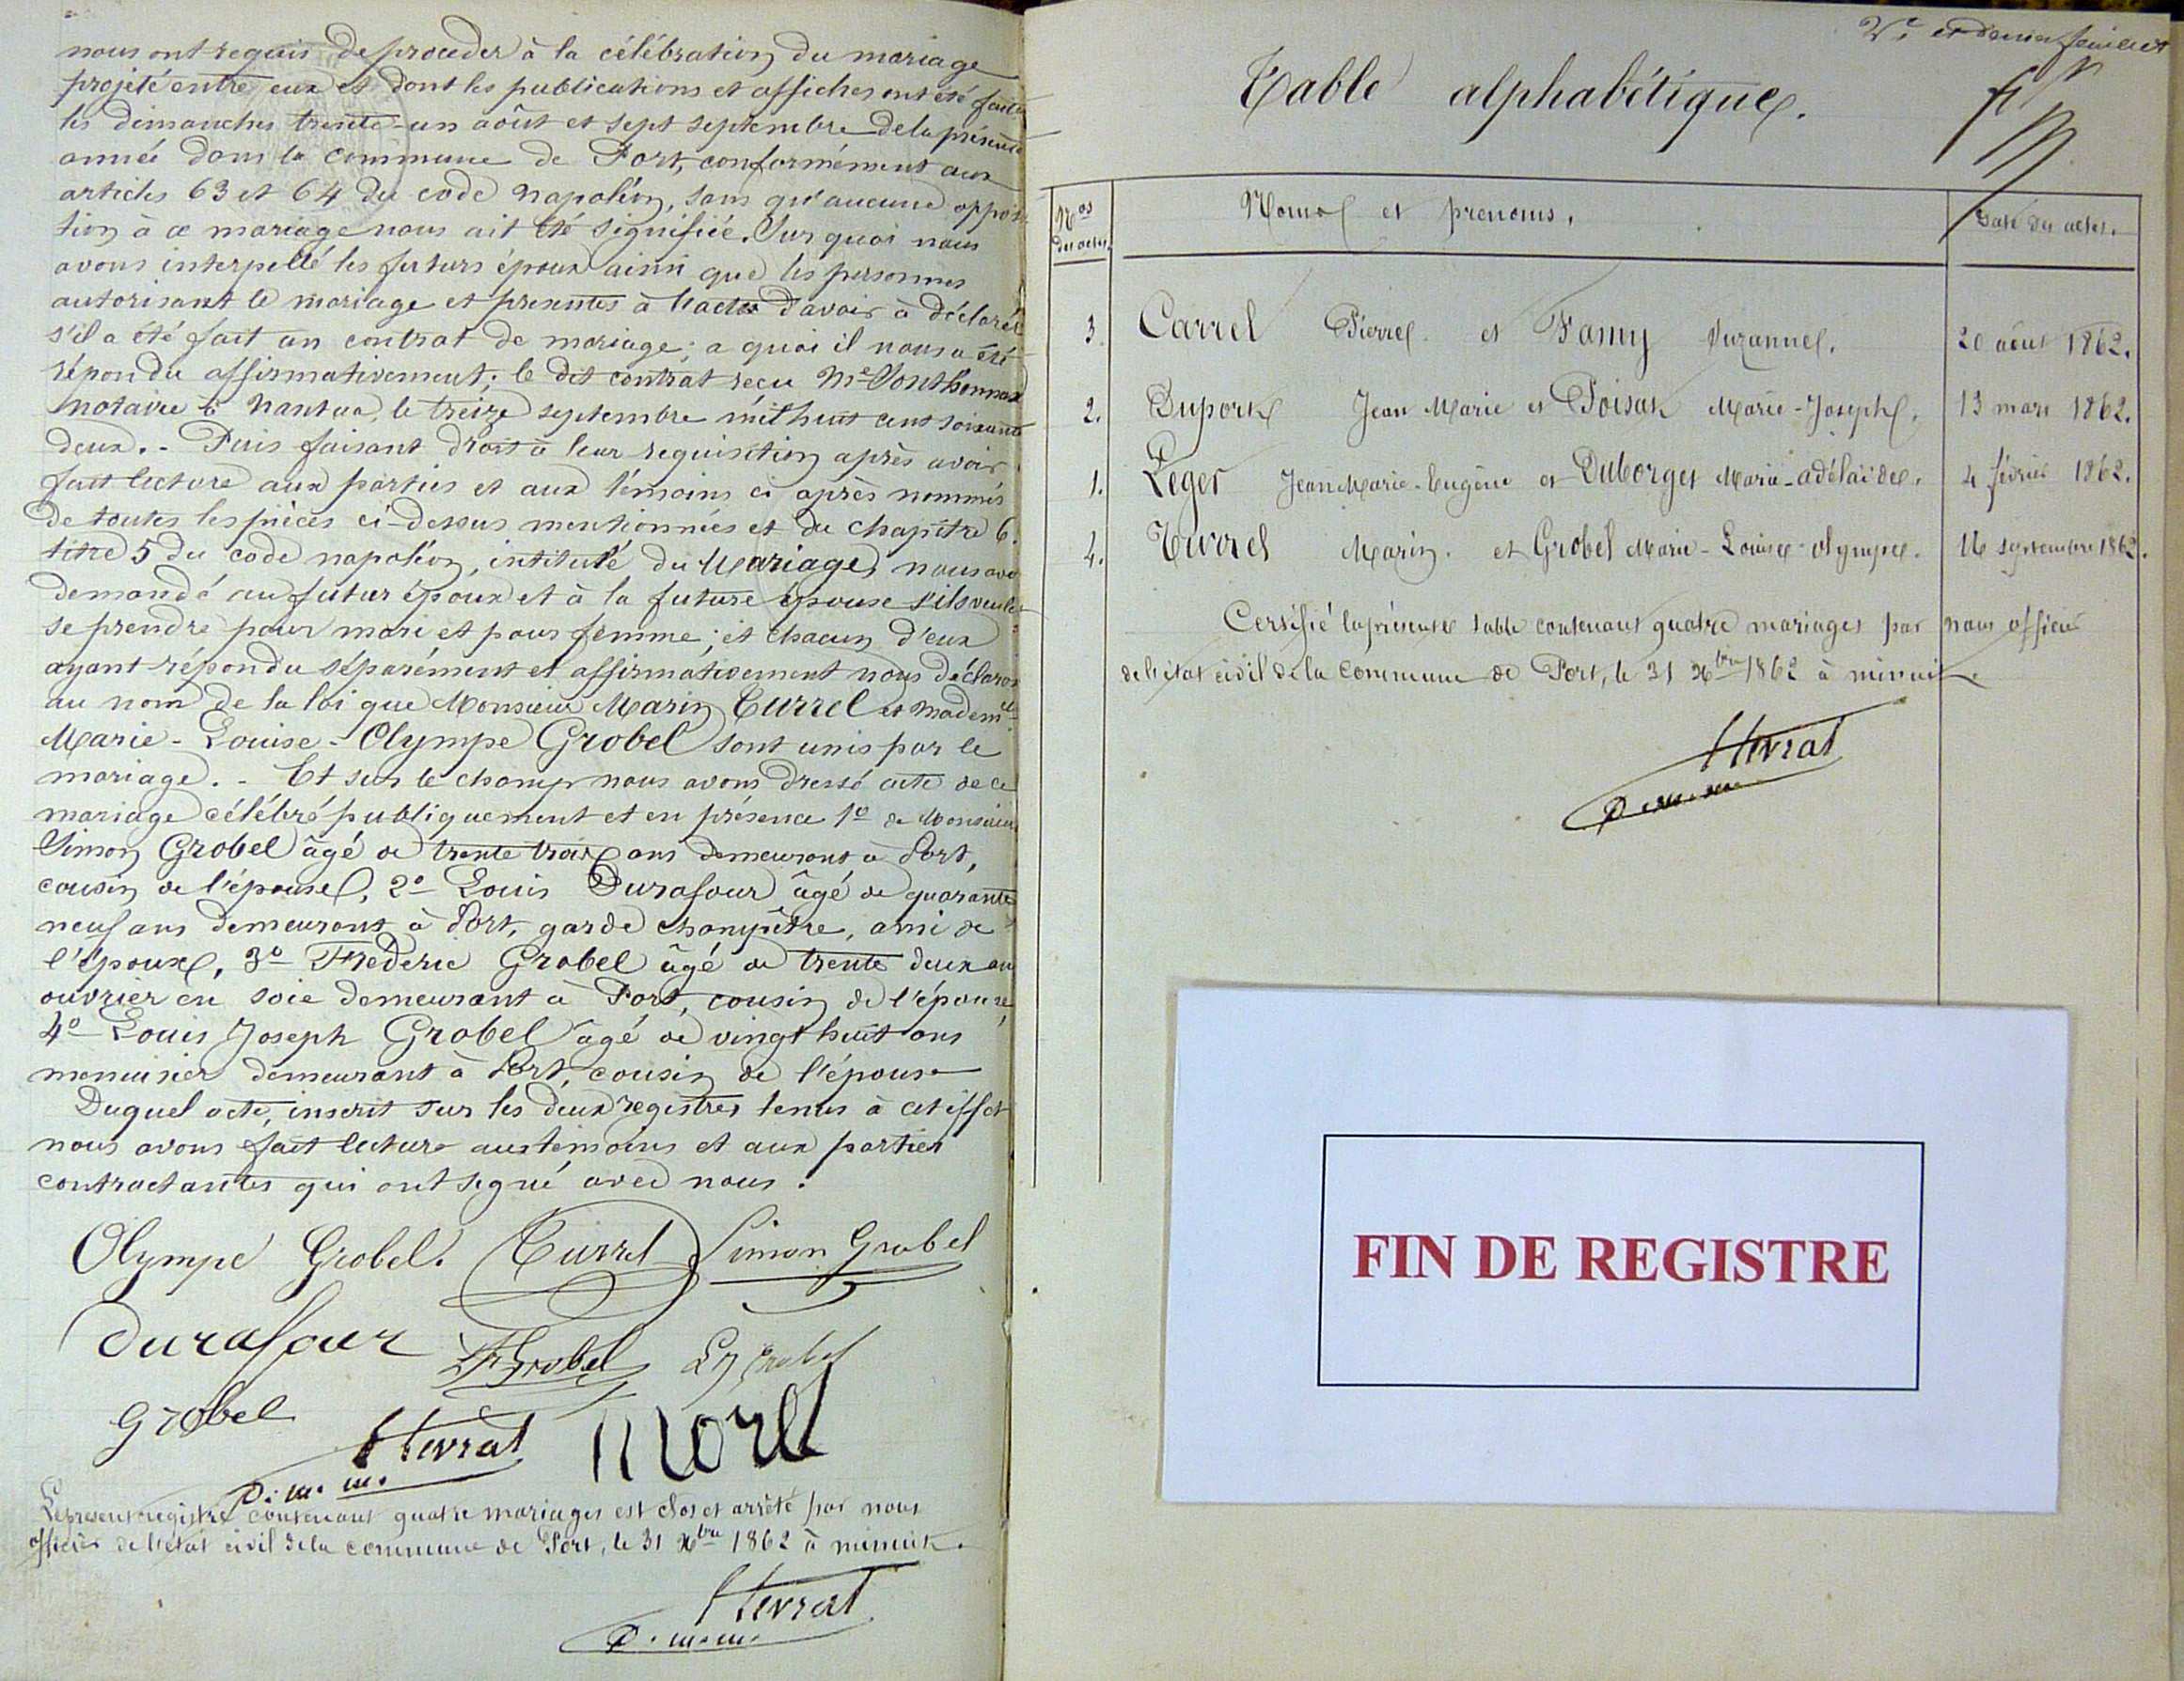 nous ont requis de proceder à la célébration du mariage
projeté entre eux et dont les publications et affiches ont été faites
les dimanches trente-un août et sept septembre de la présente
année dans la commune de Port, conformément aux
articles 63 et 64 du code napoléon, sans qu'aucune opposi
tion à ce mariage nous ait été signifiée. Sur quoi nous
avons interpellé les futurs époux ainsi que les personnes
autorisant le mariage et presentes à l'acte d'avoir à déclarer
s'il a été fait un contrat de mariage; a quoi il nous a été
répondu affirmativement; le dit contrat reçu Me Jonthonnax
notaire à Nantua, le treize septembre mil huit cent soixante
deux. - Puis faisant droit à leur requisition après avoir
fait lecture aux parties et aux témoins ci après nommés
de toutes les pièces ci-dessus mentionnées et du chapitre 6.
titre 5 du code napoléon, intitulé du Mariage, nous avons
demandé au futur époux et à la future épouse s'ils veulent
se prendre pour mari et pour femme; et chacun d'eux
ayant répondu séparément et affirmativement nous déclarons
au nom de la loi que Monsieur Marin Turrel et Mademlle
Marie-Louise-Olympe Grobel sont unis par le
mariage. - Et sur le champ nous avons dressé acte de ce
mariage célébré publiquement et en présence 1o de Monsieur
Simon Grobel âgé de trente trois ans demeurant à Port,
cousin de l'épouse, 2o Louis Durafour âgé de quarante
neuf ans demeurant à Port, garde champêtre, ami de
l'époux, 3o Frédéric Grobel âgé de trente deux ans
ouvrier en soie demeurant à Port, cousin de l'épouse,
4o Louis Joseph Grobel âgé de vingt huit ans
menuisier demeurant à Port, cousin de l'épouse
Duquel acte, inscrit sur les deux registres tenus à cet effet
nous avons fait lecture aux témoins et aux parties
contractantes qui ont signé avec nous.
Olympe Grobel. Turrel Simon Grobel
Durafour F Grobel L J Grobel
Grobel
Hevrat morel
Le présent registre contenant quatre mariages est clos et arrêté par nous
officier de l'état civil de la commune de Port, le 31 Xbre 1862 à minuit.
Hevrat
et dernier feuillet
Table alphabétique.
Nos des actes. Noms et prenoms. Date des actes.
3. Carrel Pierre et Famy Suzanne. 20 août 1862.
2. Duport Jean Marie et Poisat Marie-Josephe. 13 mars 1862.
1. Léger Jean Marie-Eugène et Duborget Marie-adélaïde. 4 février 1862.
4. Turrel Marin. et Grobel Marie-Louise-olympe. 16 septembre 1862.
Certifié la présente table contenant quatre mariages par nous officier
de l'état civil de la commune de Port, le 31 Xbre 1862 à minuit.
Hevrat
FIN DE REGISTRE